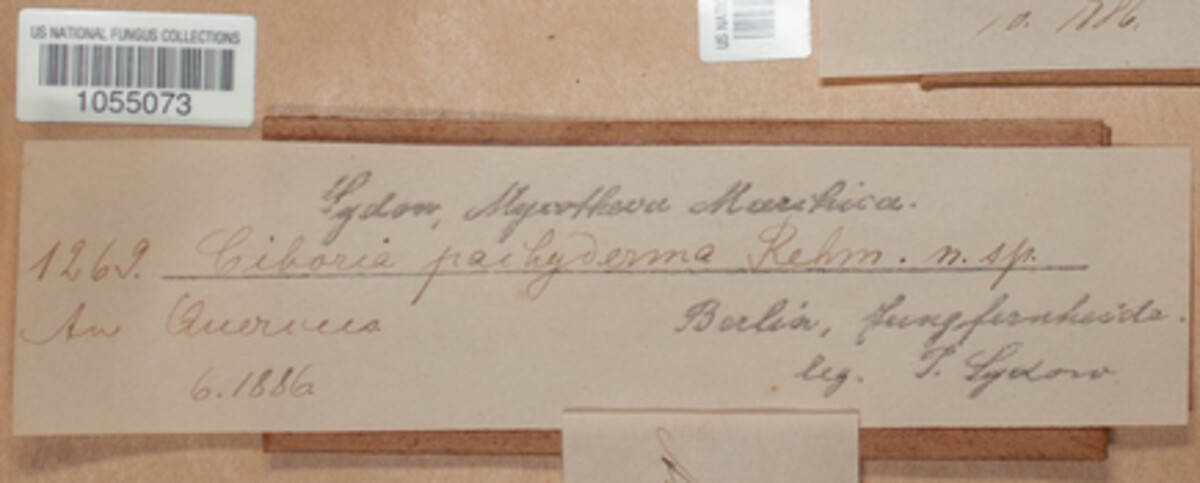 US NATIONAL FUNGUS COLLECTIONS
1055073
US N
10. 1886.
Sydow, Mycotheca Marchica.
1269. Ciboria pachyderma Rehm. n. sp.
An Quercus
Berlin, Jungfernheide.
6.1886
leg. P. Sydow